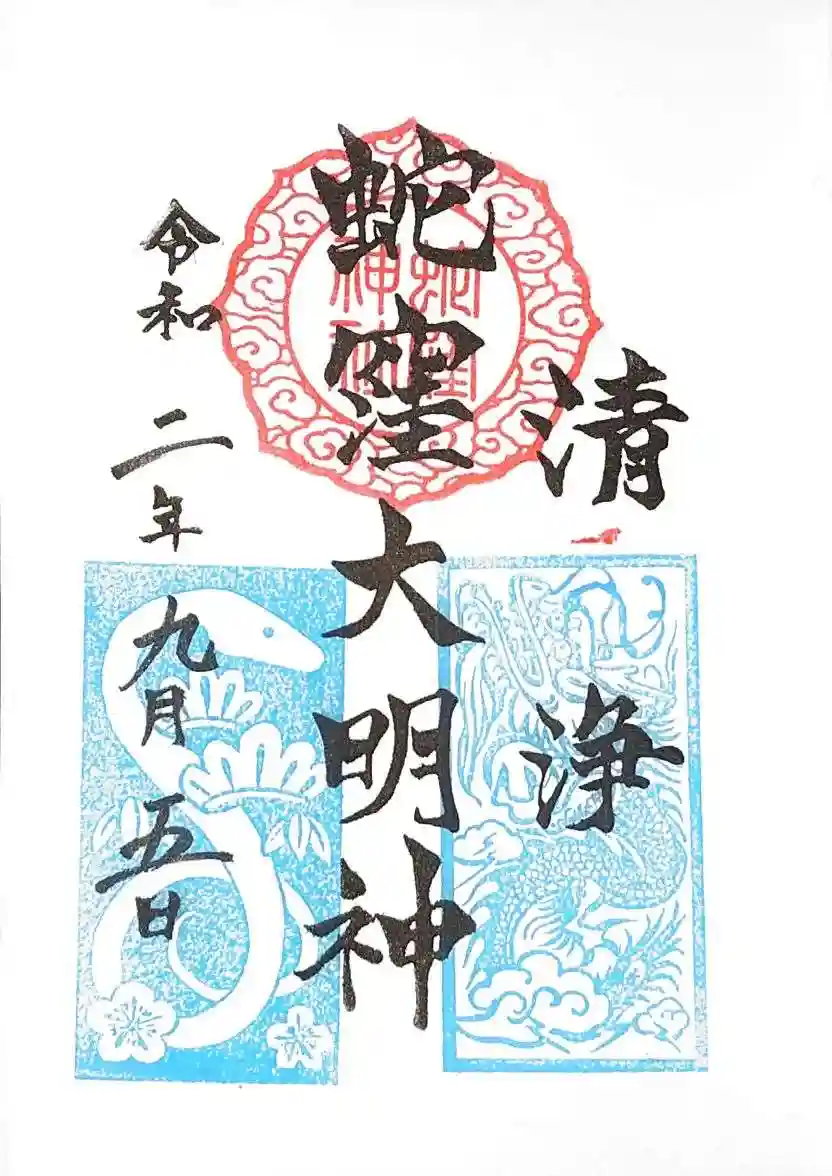 清浄
蛇窪大明神
蛇窪
神社
令和二年九月五日